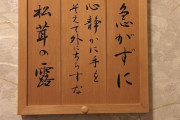 急がずに
心静かに手を
そえて外にちらすな
松茸の露